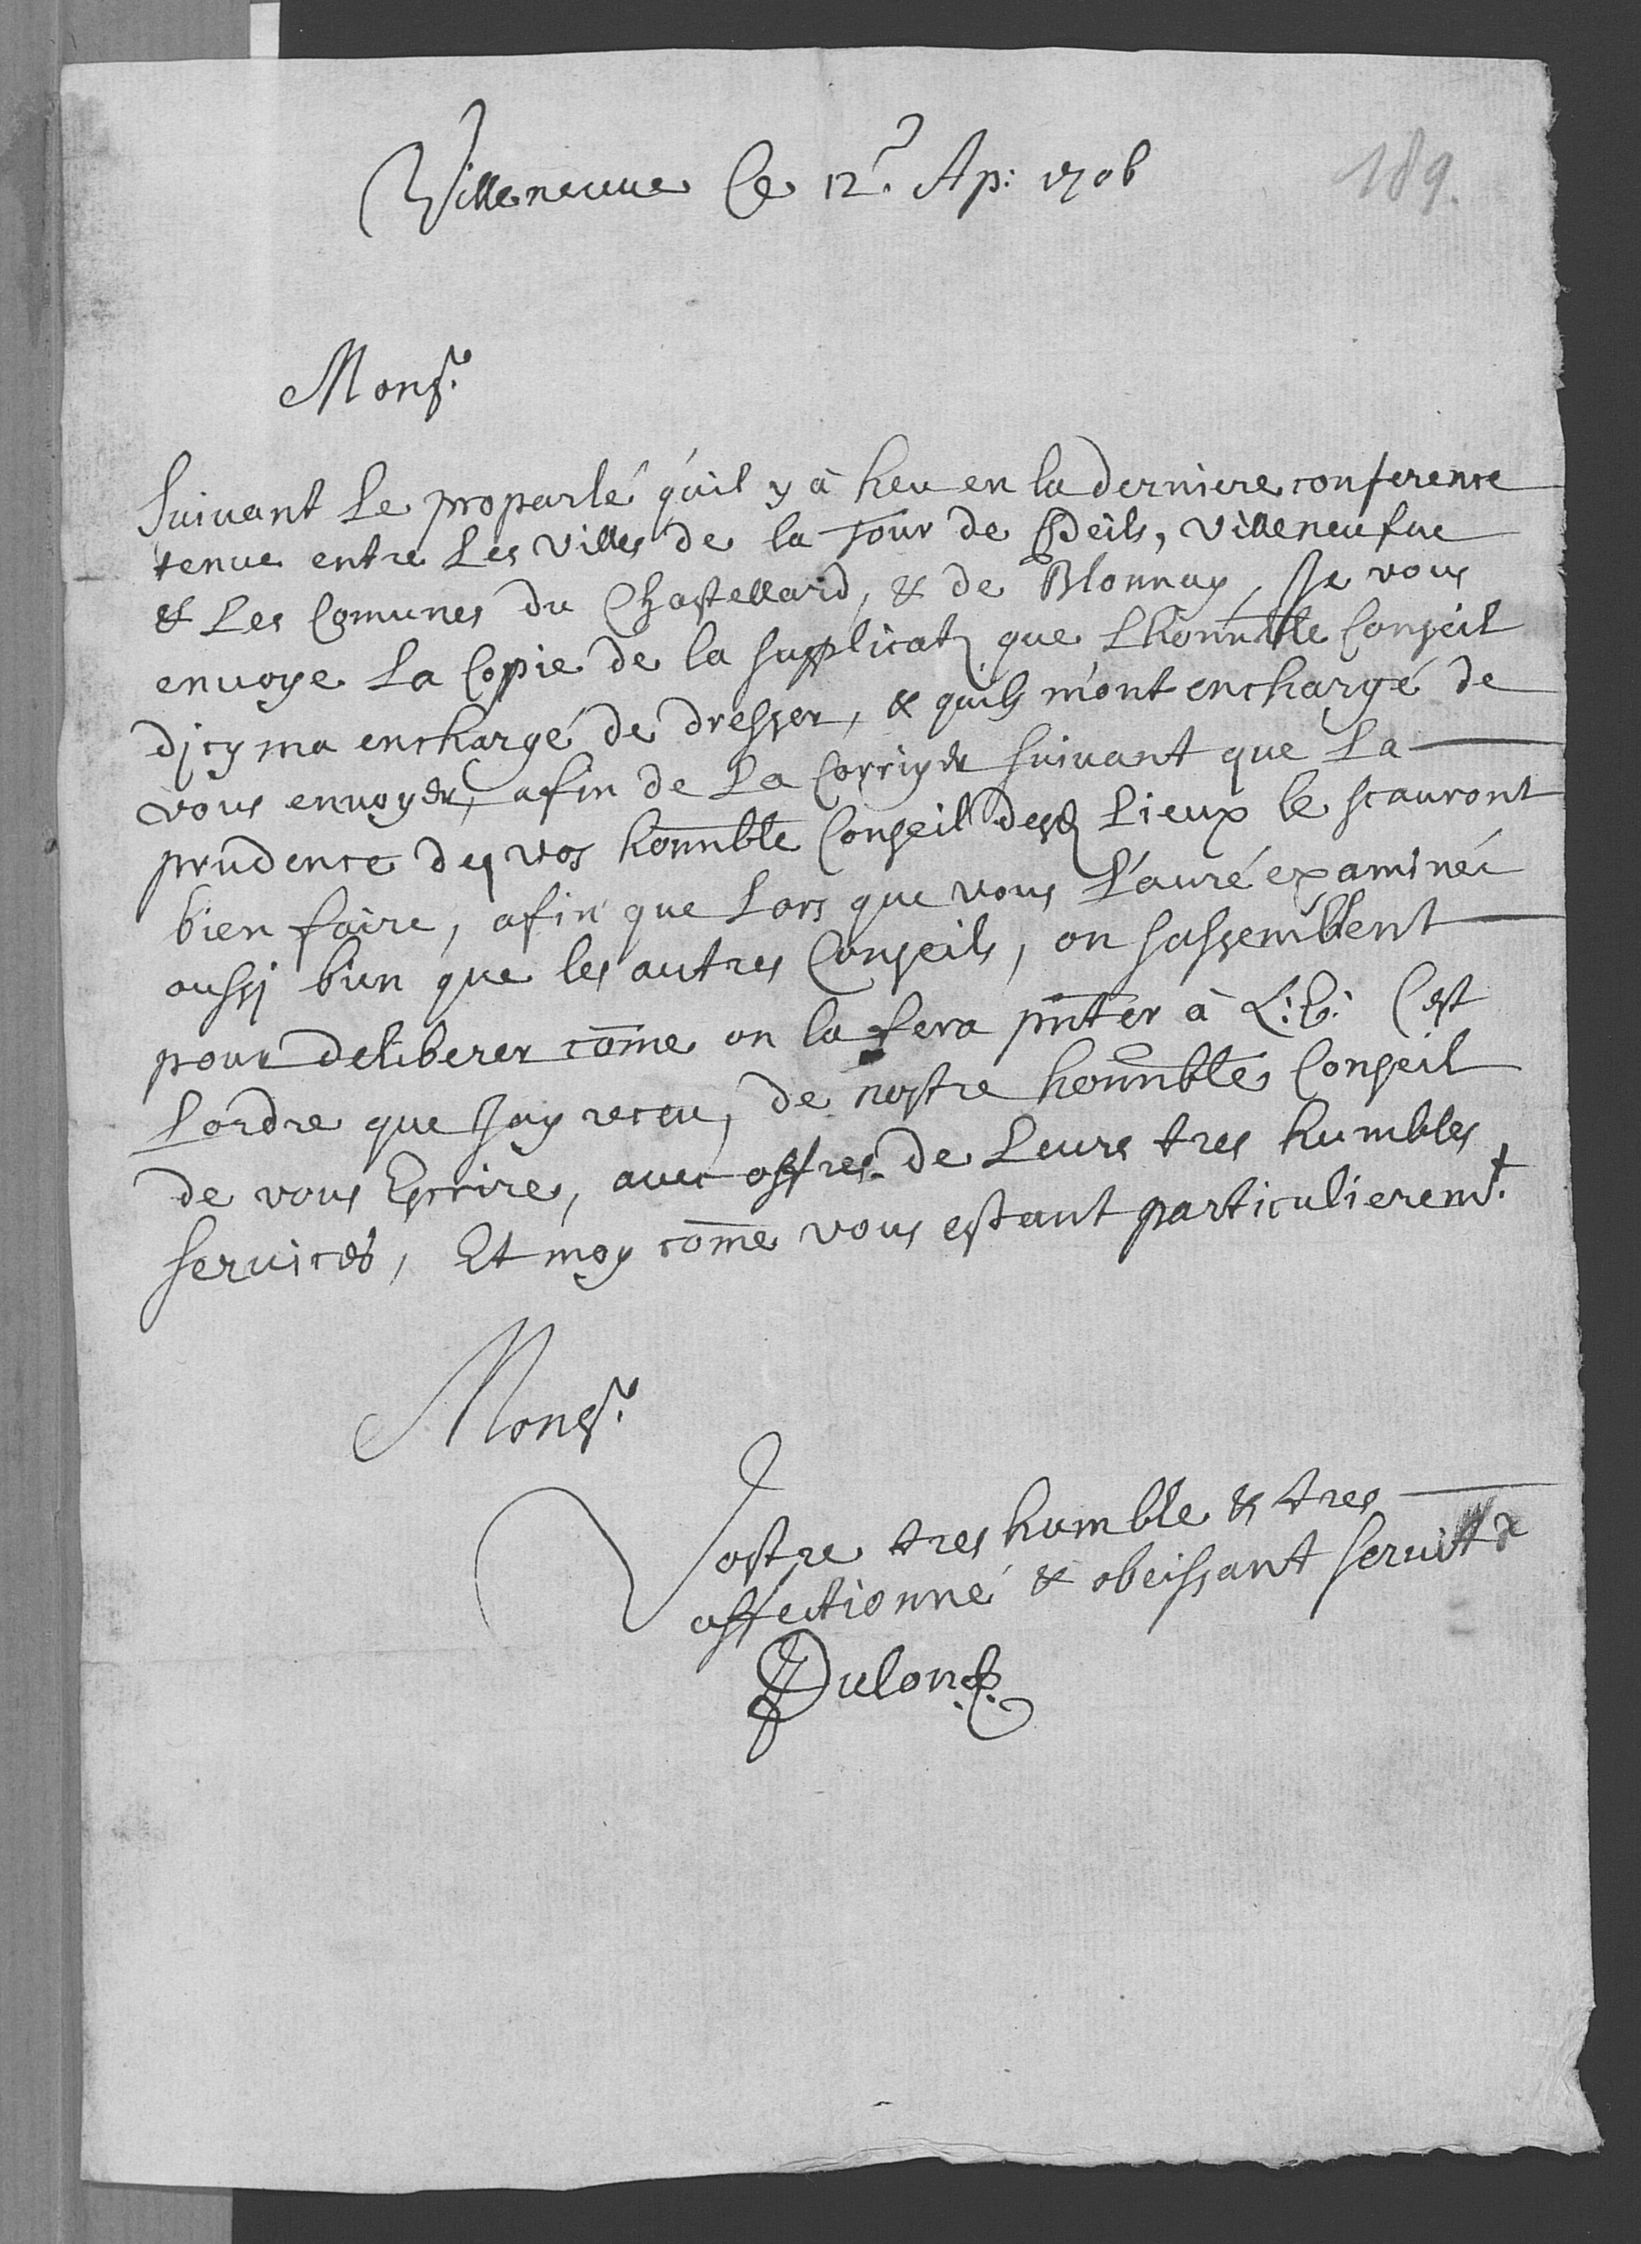 Villeneuue Ce 12e. Ap: 1706
189.
Monsr.
Suivant Le proparlé quil y à heu en la derniere conference
tenue entre Les villes de la Tour de Peils, villeneufue
& Les Comunes du Chastellard, & de Blonnay, Je vous
enuoye La Copie de la supplicat que Lhonnble Conseil
dicy ma enchargé de dresser, & quils m'ont enchargé de
vous enuoyer, afin de La Corriger suiuant que La
prudence de vos honnble Conseil desd Lieux le scauront
bien faire, afin que Lors que vous L'auré examinée
aussi bien que les autres Conseils, on sassemblent
pour deliberer come on la fera pnter à L: E: Cest
Lordre que Jay receu, de nostre honnble Conseil
de vous Escrire, auec offres de Leurs tres humbles
seruices, Et moy come vous estant particulieremt.
Monsr.
Vostre tres humble & tres
affectionné & obeissant seruitr
Dulon